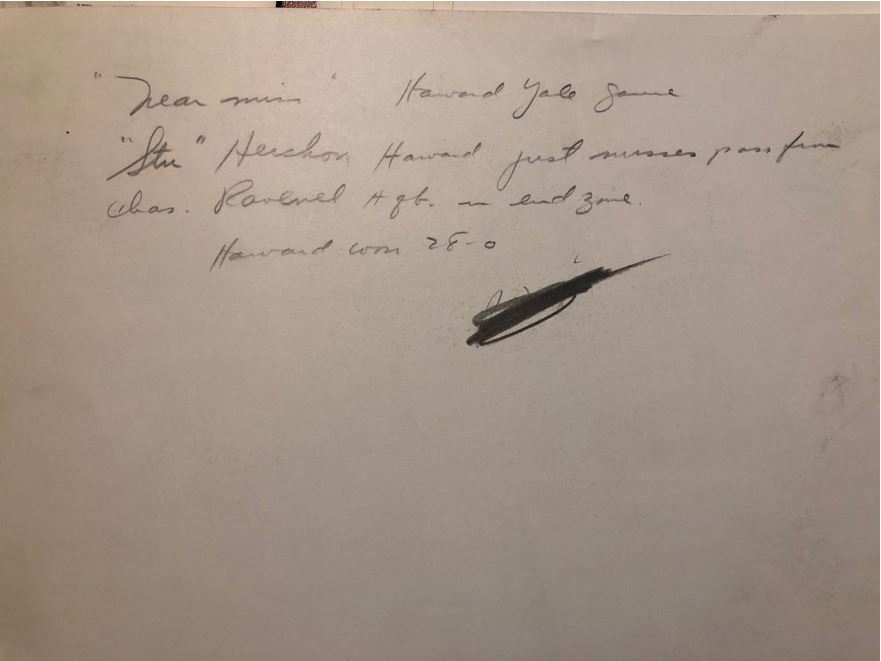 "Near miss" Harvard Yale game
"Stu" Hershon Harvard just misses pass from
Chas. Ravenel H qb. in end zone.
Harvard won 28-0